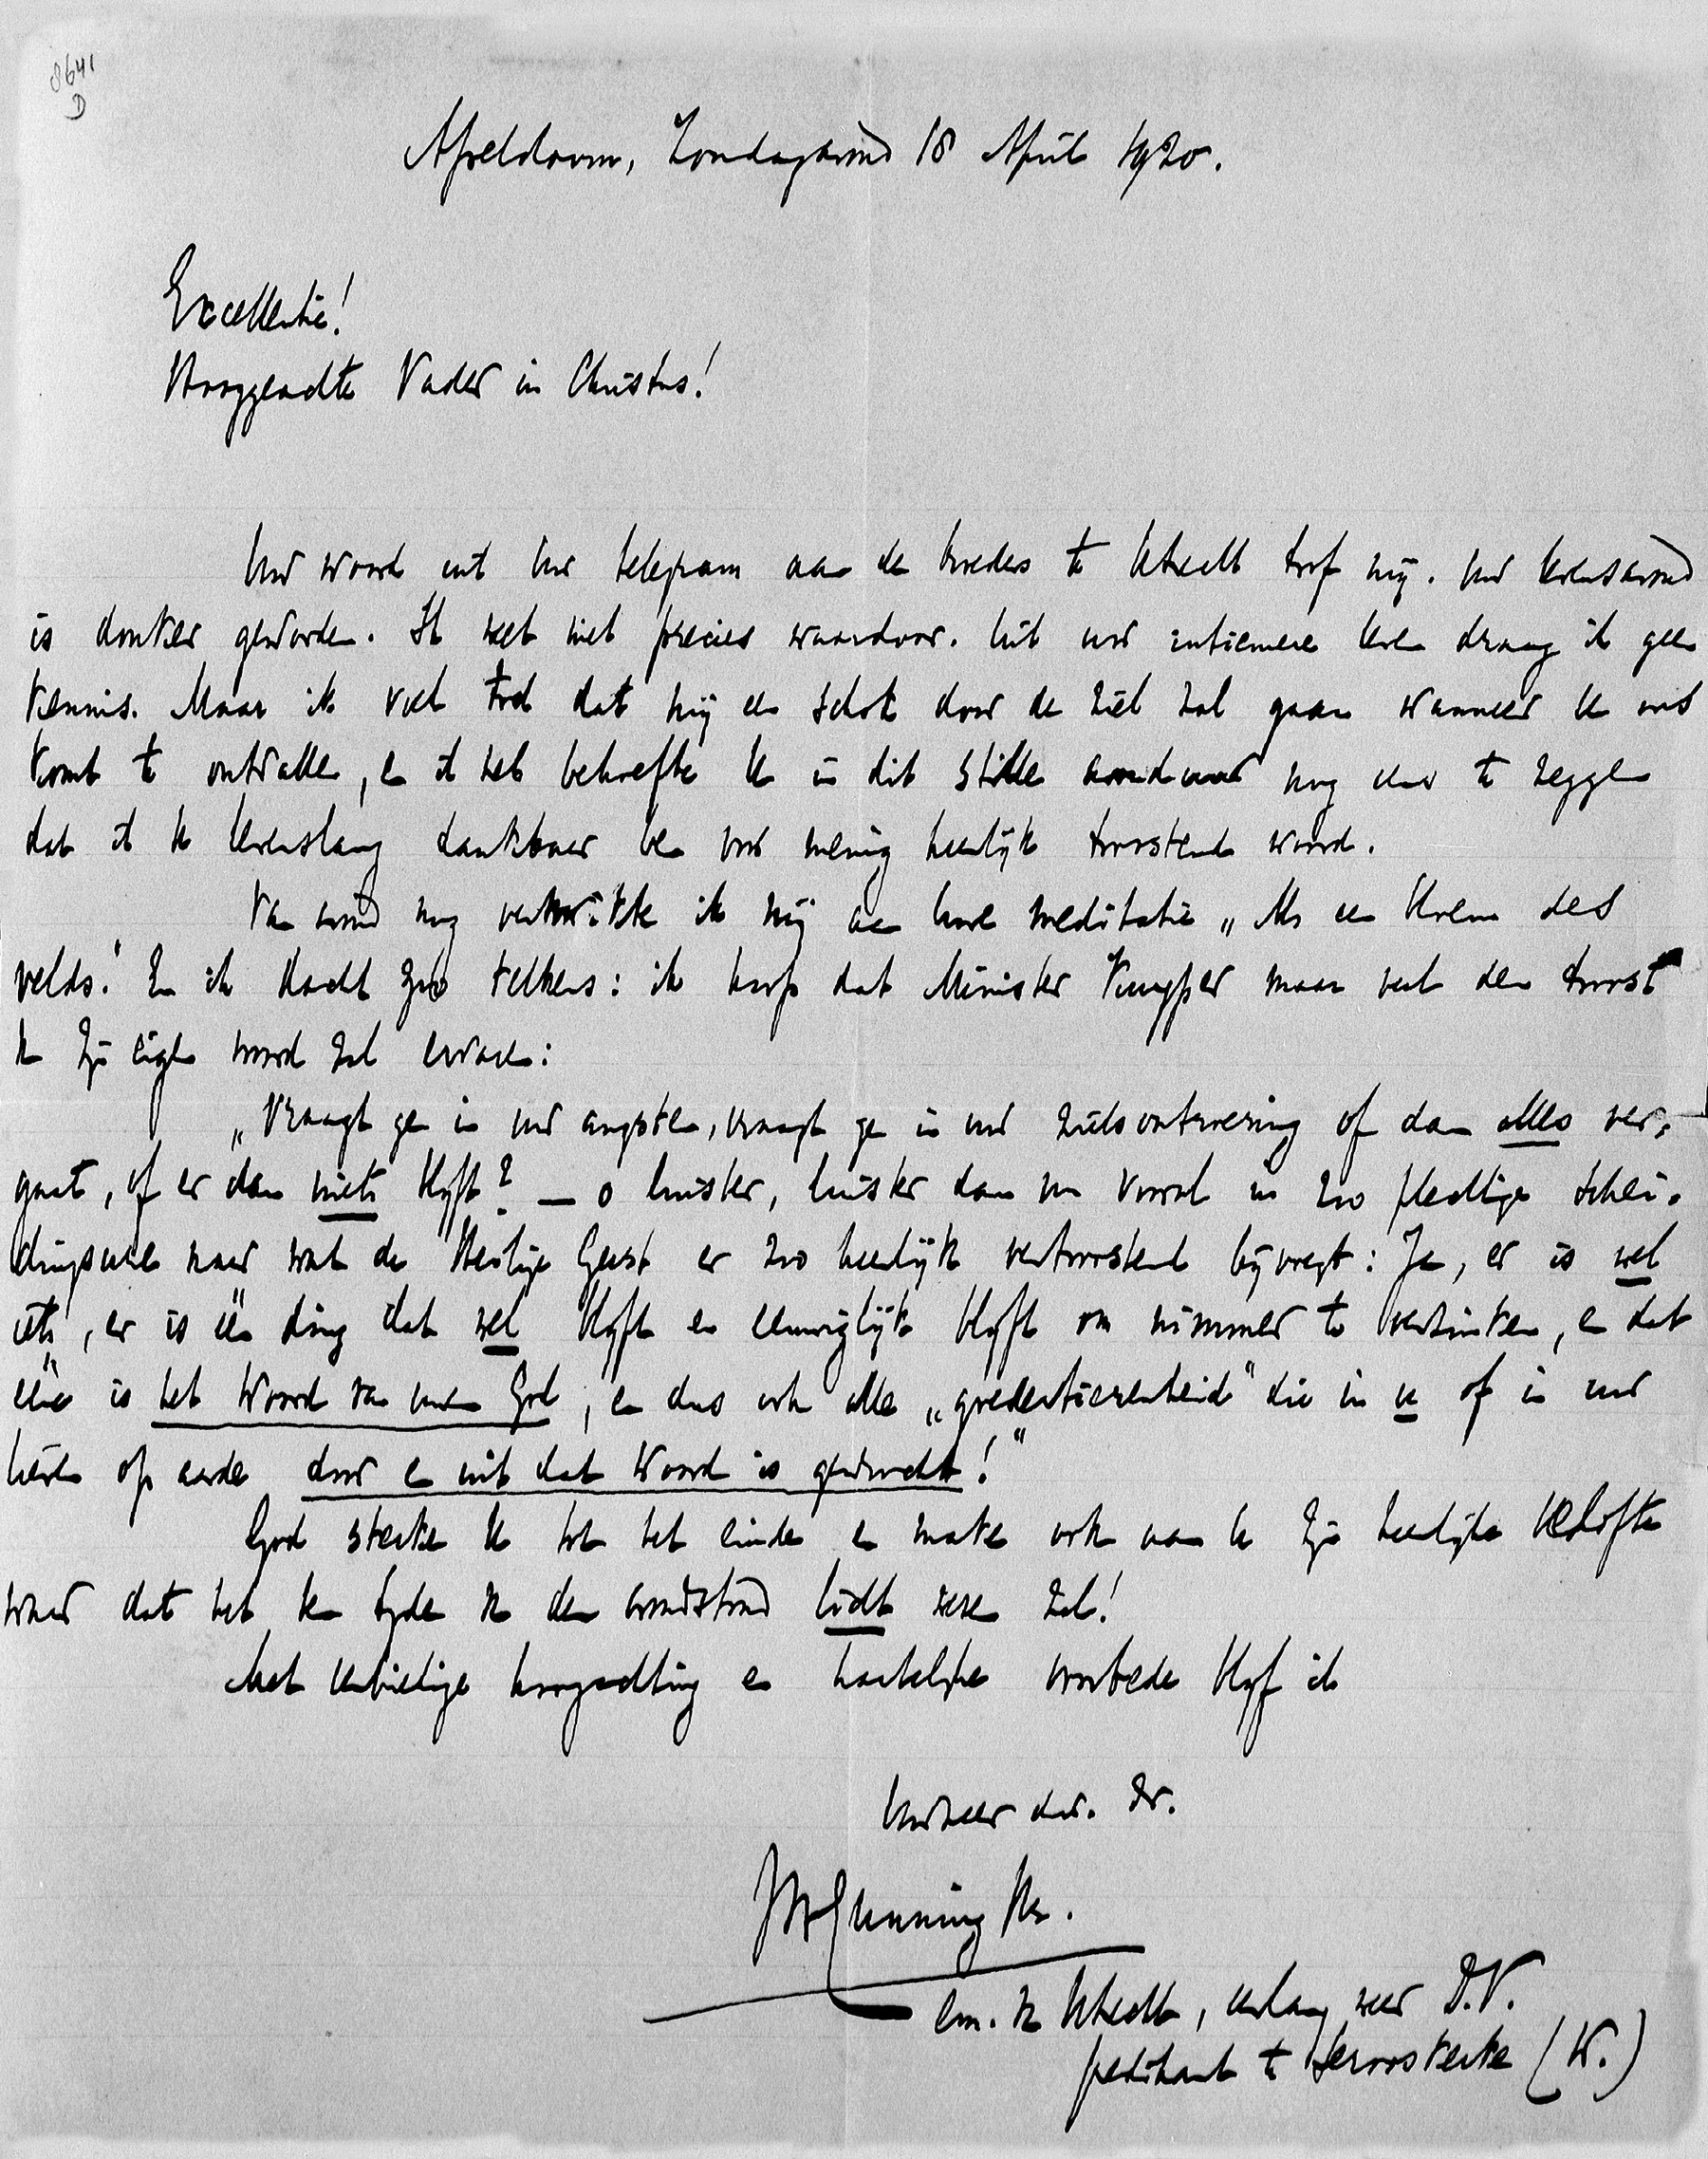 8641
D
Apeldoorn, Zondagavond 18 April 1920.
Excellentie!
Hooggeachte Vader in Christus!
Uw woord uit Uw telegram aan de broeders te Utrecht trof mij. Uw levensavond
is donker geworden. Ik weet niet precies waardoor. Uit uw intiemere leven draag ik geen
kennis. Maar ik voel toch dat mij een schok door de ziel zal gaan wanneer U ons
komt te ontvallen, en ik heb behoefte U in dit stille avonduur nog eens te zeggen
dat ik U levenslang dankbaar ben voor menig heerlijk troostend woord.
Van avond nog verkwikte ik mij aan Uwe meditatie „Als een bloem des
velds." En ik dacht zoo telkens: ik hoop dat Minister Kuyper maar veel den troost
v. zijn eigen woord zal ervaren:
„Vraagt ge in uw angsten, vraagt ge in uw zielsontroering of dan alles ver-
gaat, of er dan niets blyft? — o luister, luister dan nu vooral in zoo plechtige schei-
dingsure naar wat de Heilige Geest er zoo heerlijk vertroostend bijvoegt: Ja, er is wel
iets, er is één ding dat wel blyft en eeuwiglijk blyft om nimmer te verzinken, en dat
ééne is het Woord van uwen God, en dus ook alle „goedertierenheid" die in u of in uw
leven op aarde door en uit dat Woord is gewrocht!"
God sterke U tot het einde en make ook aan U zijn heerlijke belofte
waar dat het ten tyde v. den avondstond licht wezen zal!
Met eerbiedige hoogachting en hartelyke voorbede blyf ik
Uwzeer dw. Dr.
JHGunning JHz.
em. v. Utrecht, eerlang weer D.V.
predikant te Serooskerke (W.)